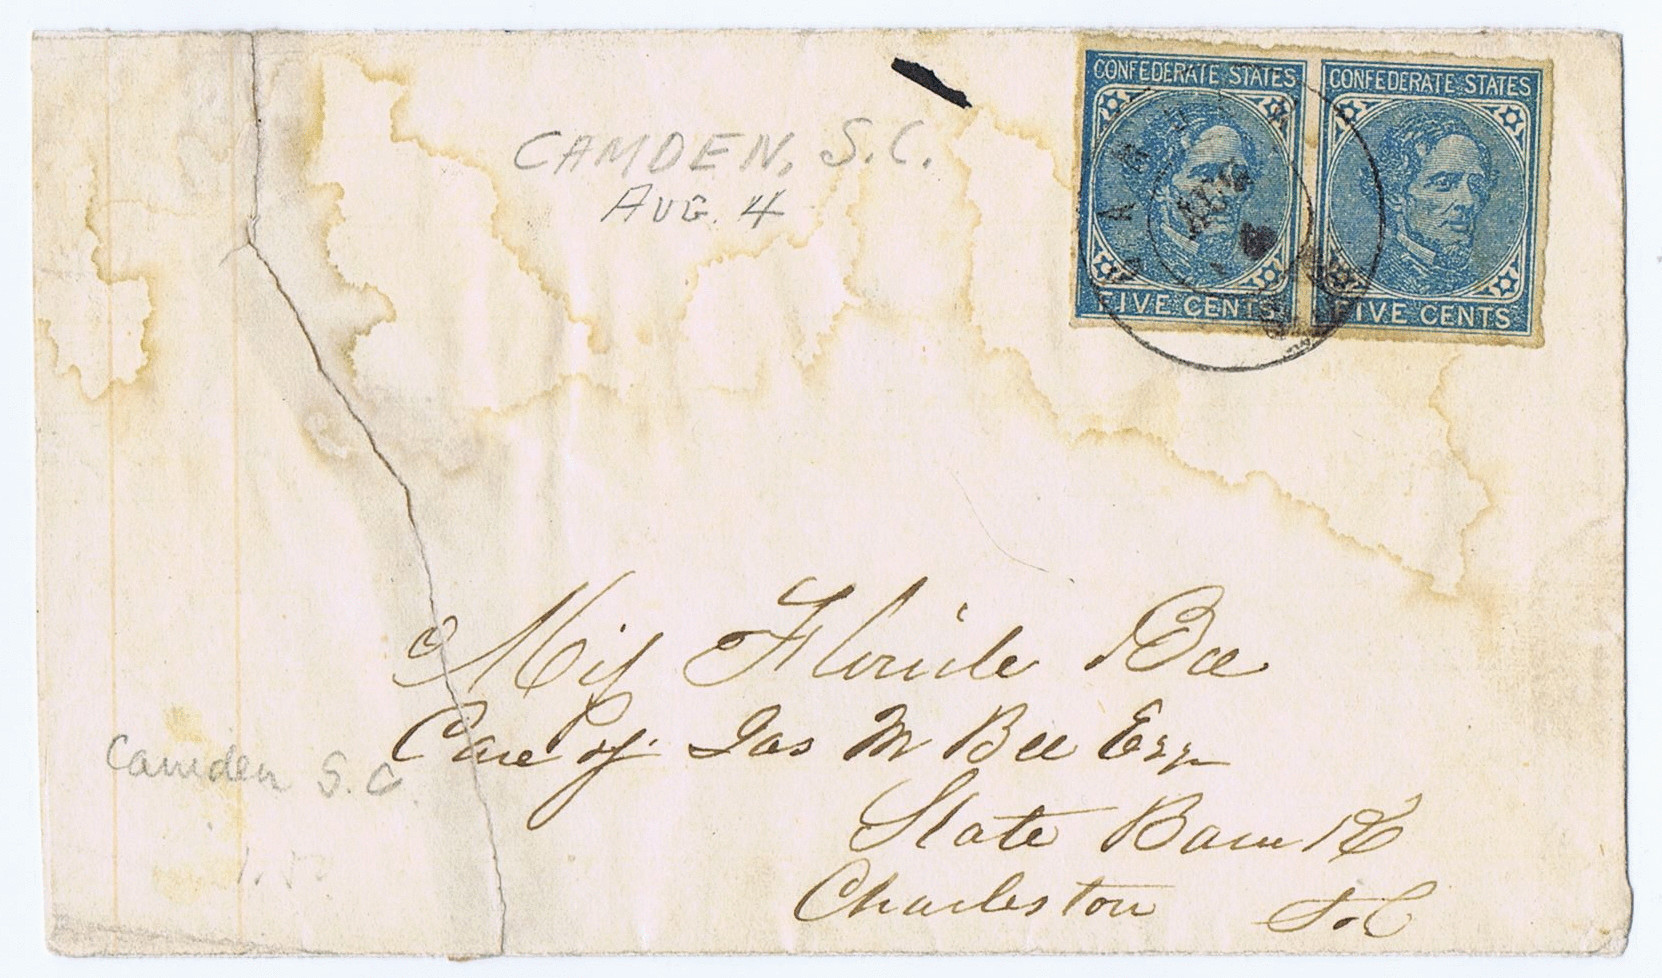 CONFEDERATE STATES
FIVE CENTS
CONFEDERATE STATES
FIVE CENTS
AUG
CAMDEN, S.C.
AUG. 4
Miss Floride Bee
Care of Jas M Bee Esqr
State Bank
Charleston S.C
Camden S.C.